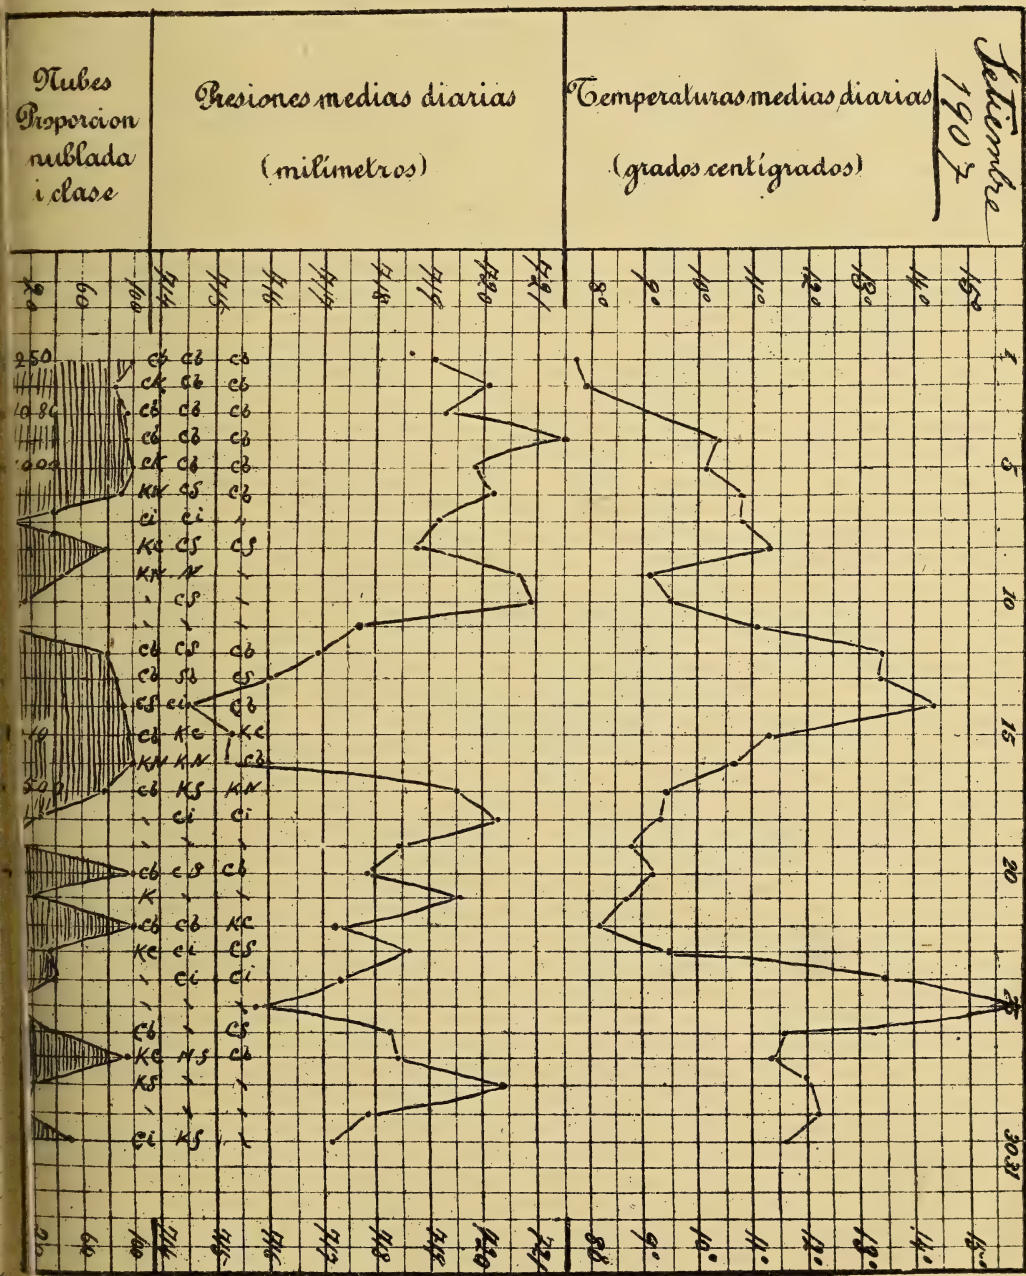 Nubes
Proporcion
nublada
i clase
Presiones medias diarias
(milímetros)
Temperaturas medias diarias
(grados centígrados)
Setiembre
1907
20 60 100 714 715 716 717 718 719 720 721 8° 9° 10° 11° 12° 13° 14° 15°
250 cb cb cb 1
cK cb cb
cb cb cb
cb cb cb
cK cb cb 5
KN CS cb
ci ci
KC CS CS
KN N
CS 10
cb CS cb
cb Sb CS
CS ci cb
cb KC KC 15
KN KN cb
cb KS KN
ci ci
cb CS cb 20
K
cb cb KC
KC ci CS
ci ci
cb CS
KC NS cb
KS
ci KS 30 31
20 60 100 714 715 716 717 718 719 720 721 8° 9° 10° 11° 12° 13° 14° 15°